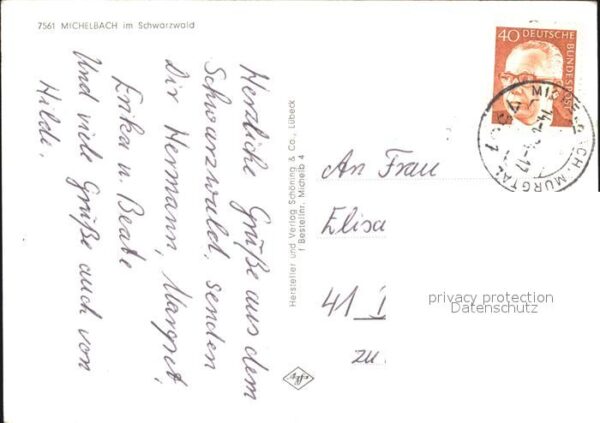 7561 MICHELBACH im Schwarzwald
Herzliche Grüße aus dem
Schwarzwald, senden
Dir Hermann, Margret,
Erika u. Beate
Und viele Grüße auch von
Hilde.
Hersteller und Verlag Schöning & Co., Lübeck
f Bestellnr. Michelb 4
40 DEUTSCHE
BUNDESPOST
MURGTAL
An Frau
Elisa
41
zu
privacy protection
Datenschutz